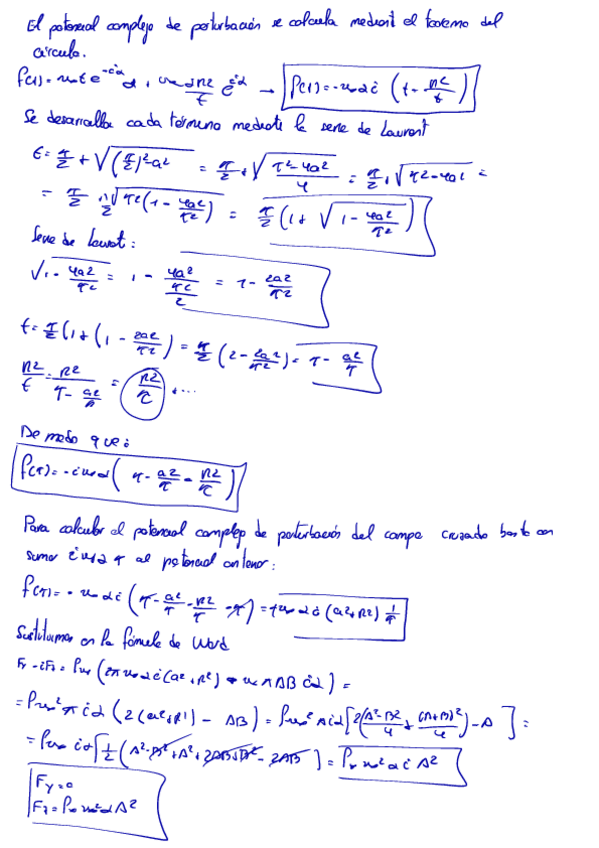 El potencial complejo de perturbación se calcula mediant el teorema del
círculo.
f(t) = u∞ t e^{-iα} α + u∞ α R²/t e^{iα} → f(t) = -u∞ α i (t - R²/t)
Se desarrolla cada término mediante la serie de Laurent
t = τ/2 + √((τ/2)² - a²) = τ/2 + √((τ² - 4a²)/4) = τ/2 + √(τ² - 4a²) =
= τ/2 + 1/2 √(τ² (1 - 4a²/τ²)) = τ/2 (1 + √(1 - 4a²/τ²))
Serie de Laurent:
√(1 - 4a²/τ²) = 1 - (4a²/τ²)/2 = 1 - 2a²/τ²
t = τ/2 (1 + (1 - 2a²/τ²) = τ/2 (2 - 2a²/τ²) = τ - a²/τ
R²/t = R²/(τ - a²/τ) = R²/τ + ...
De modo que:
f(τ) = -i u∞ α (τ - a²/τ - R²/τ)
Para calcular el potencial complejo de perturbación del campo cruzado basta con
sumar i u∞ α τ al potencial anterior:
f(τ) = - u∞ α i (τ - a²/τ - R²/τ - τ) = + u∞ α i (a² + R²) 1/τ
Sustituimos en la fórmula de Ward
Fy - iFz = ρ∞ u∞ (2π u∞ α i (a² + R²) - u∞ π AB iα) =
= ρ∞ u∞² π i α (2(a² + R²) - AB) = ρ∞ u∞² π i α [2((A² - B²)/4 + (A+B)²/4) - A ] =
= ρ∞ i α [1/2 (A² - B² + A² + 2AB + B² - 2AB)] = ρ∞ u∞² α i A²
Fy = 0
Fz = ρ∞ u∞² α A²